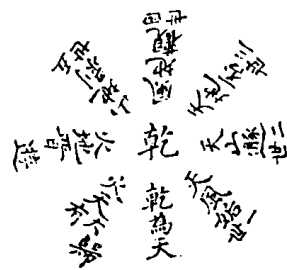 乾
乾為天
天風姤
世一
天山遯
世二
天地否
世三
風地觀
世四
山地剝
世五
火地晉
遊
火天大有
歸